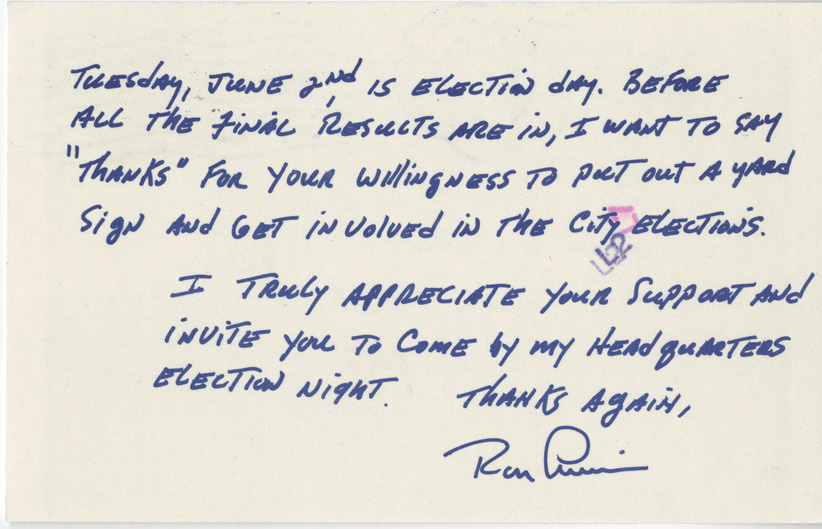 TUESDAY, JUNE 2nd, IS ELECTION DAY. BEFORE
ALL THE FINAL RESULTS ARE IN, I WANT TO SAY
"THANKS" FOR YOUR WILLINGNESS TO PUT OUT A YARD
SIGN AND GET INVOLVED IN THE CITY ELECTIONS.
I TRULY APPRECIATE YOUR SUPPORT AND
INVITE YOU TO COME BY MY HEADQUARTERS
ELECTION NIGHT. THANKS AGAIN,
Ron